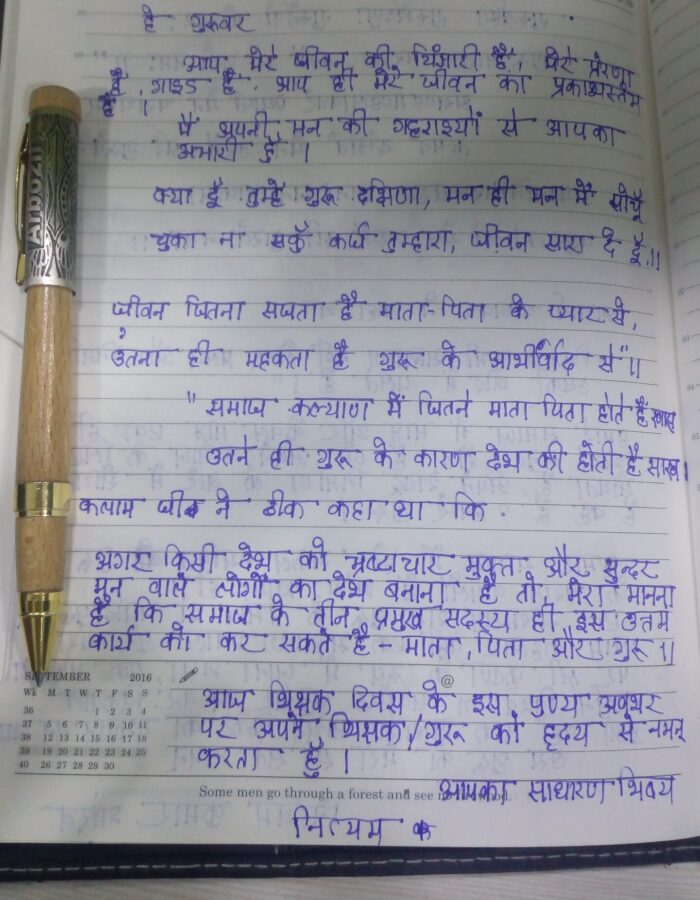 हे गुरुवर
आप मेरे जीवन की चिंगारी हैं, मेरे प्रेरणा
हैं, गाइड हैं. आप ही मेरे जीवन का प्रकाशस्तंभ
हैं ।
मैं अपनी मन की गहराइयों से आपका
अभारी हूँ ।
क्या दूँ तुम्हें गुरू दक्षिणा, मन ही मन में सोचूँ
चुका ना सकूँ कर्ज तुम्हारा, जीवन सारा दे दूँ.।।
जीवन जितना सजता है माता-पिता के प्यार से,
उतना ही महकता है गुरू के आर्शीर्वाद से"।।
"समाज कल्याण में जितने माता पिता होते हैं खास
उतने ही गुरू के कारण देश की होती है साख।
कलाम जी ने ठीक कहा था कि
अगर किसी देश को भ्रष्टाचार मुक्त और सुन्दर
मन वाले लोगों का देश बनाना है तो, मेरा मानना
है कि समाज के तीन प्रमुख सदस्य ही इस उतम
कार्य को कर सकते हैं - माता, पिता और गुरू।।
आज शिक्षक दिवस के इस पुण्य अवसर
पर अपने शिक्षक/गुरू को हृदय से नमन्
करता हूँ ।
आपका साधारण शिष्य
नित्यम
Arbozin
SEPTEMBER 2016
Wk M T W T F S S
36 1 2 3 4
37 5 6 7 8 9 10 11
38 12 13 14 15 16 17 18
39 19 20 21 22 23 24 25
40 26 27 28 29 30
@
Some men go through a forest and see no